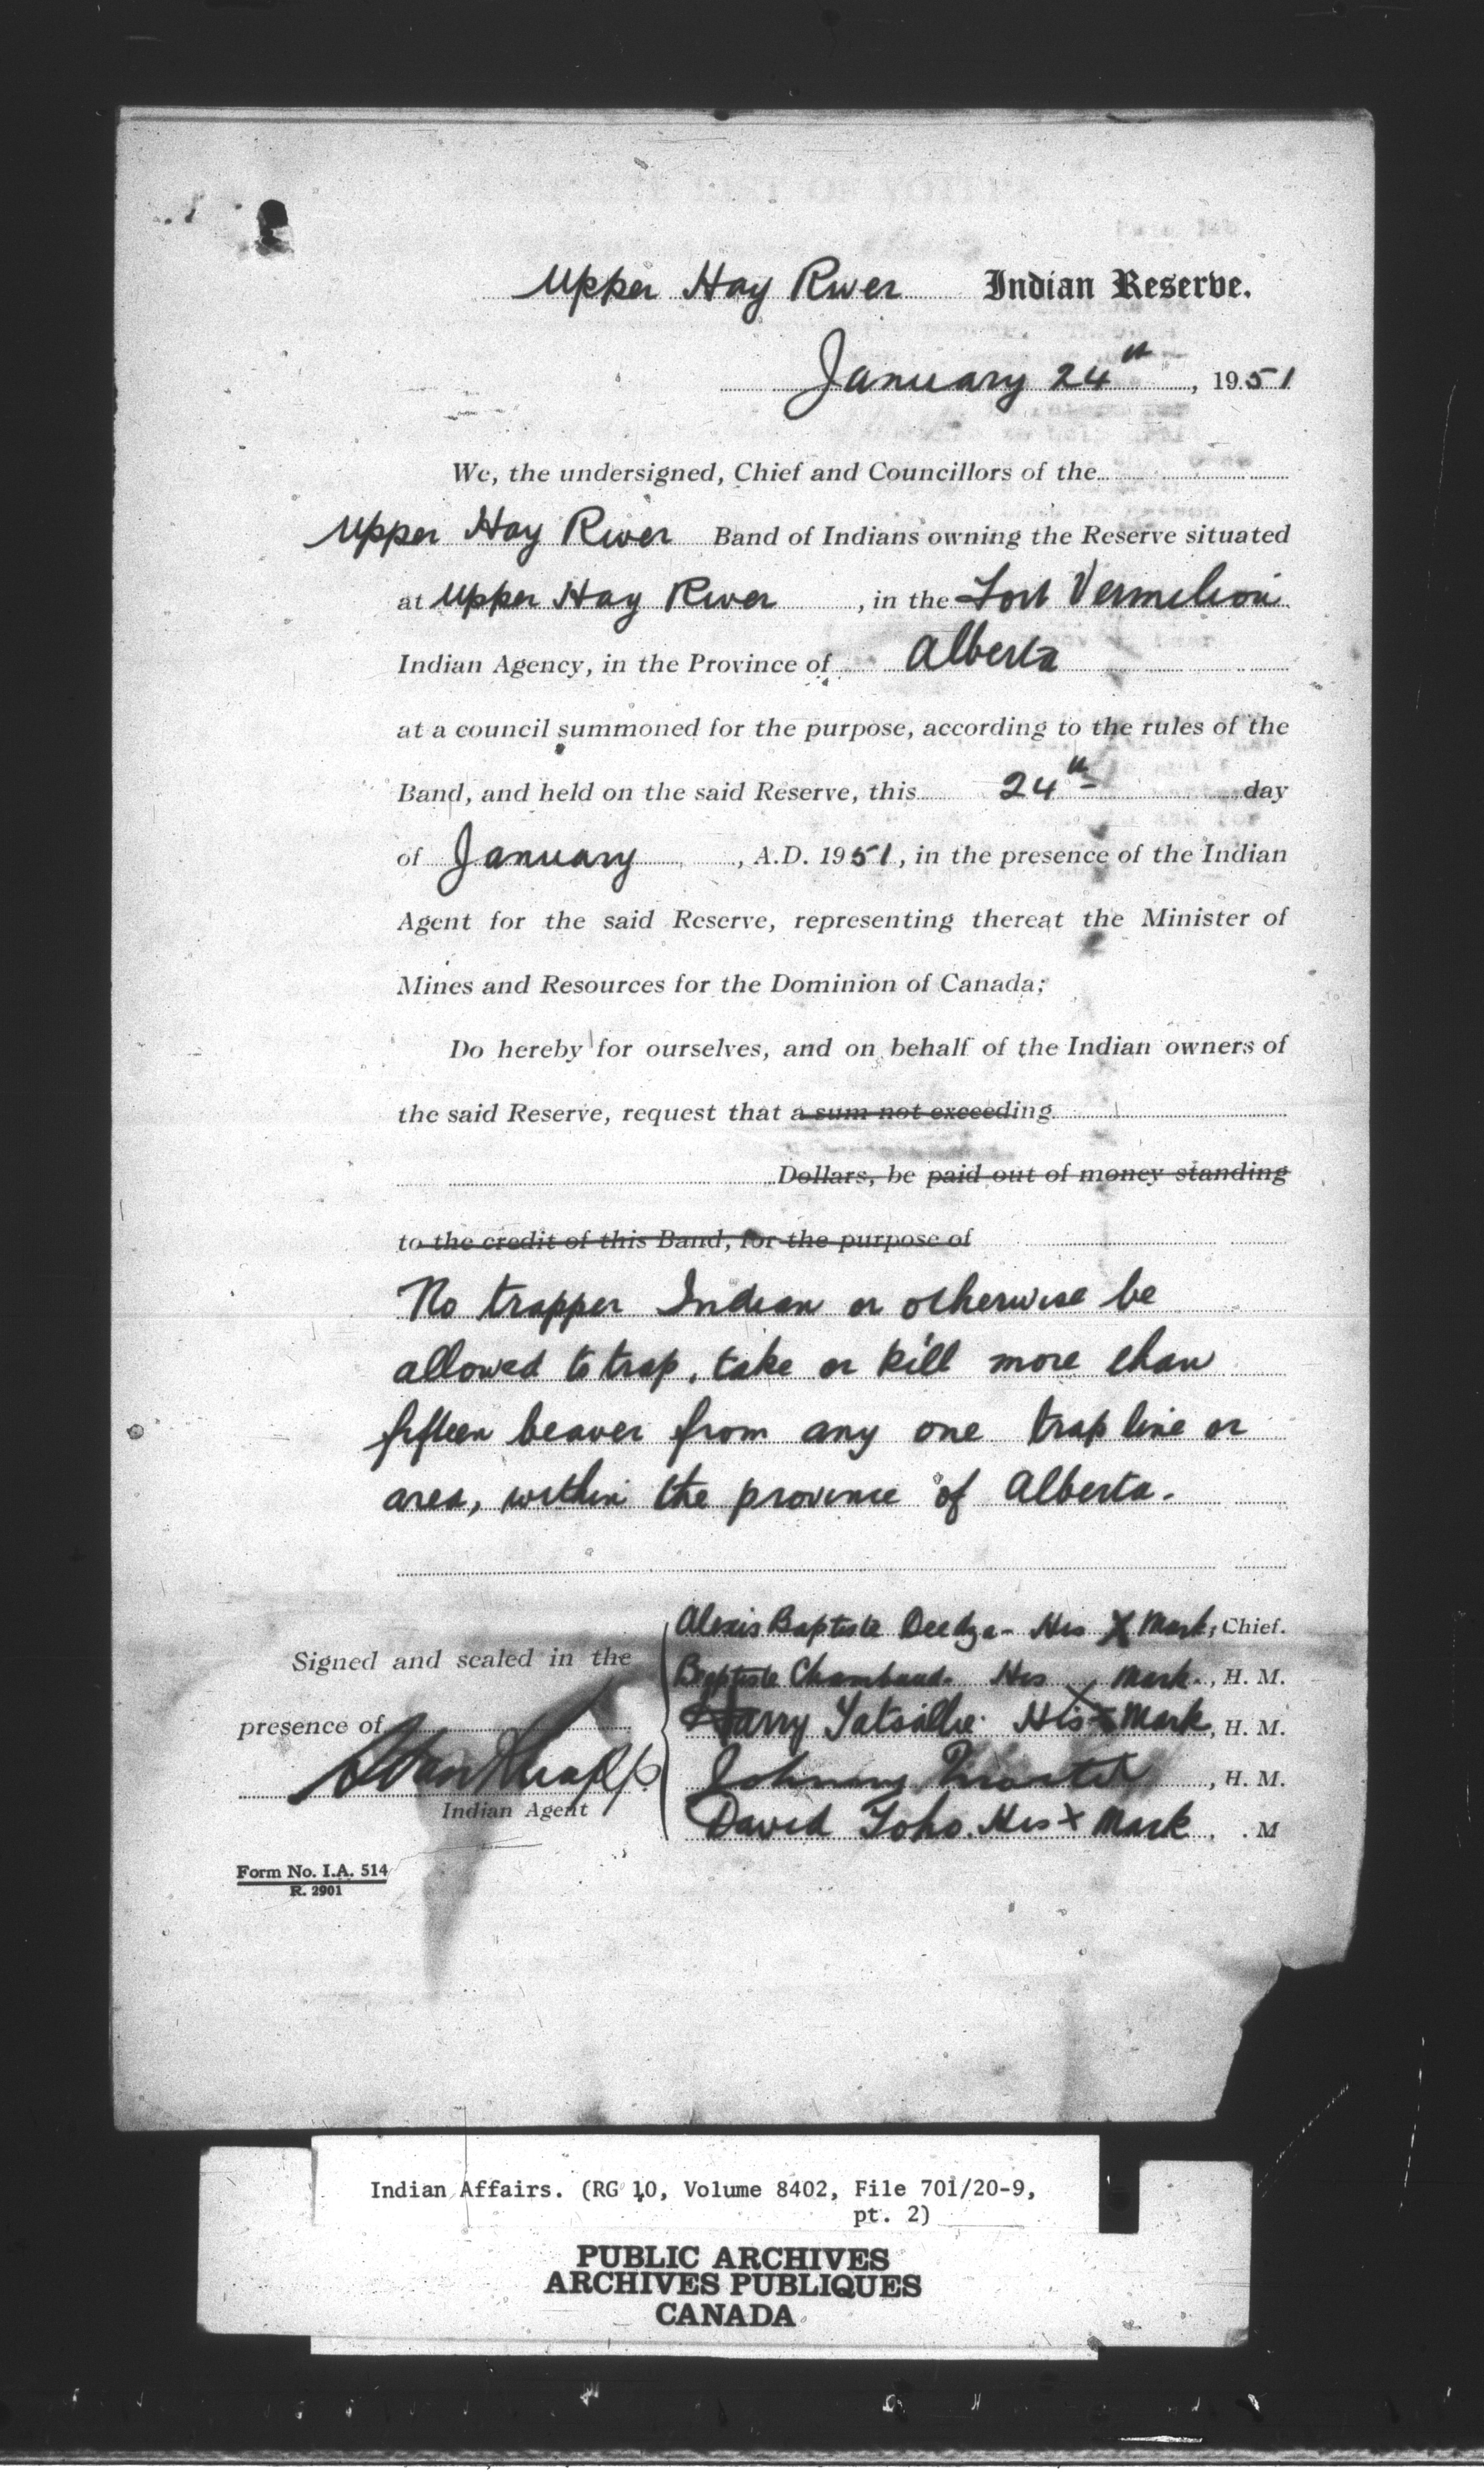 Upper Hay River Indian Reserve.
January 24th, 1951
We, the undersigned, Chief and Councillors of the
Upper Hay River Band of Indians owning the Reserve situated
at Upper Hay River, in the Fort Vermilion
Indian Agency, in the Province of Alberta
at a council summoned for the purpose, according to the rules of the
Band, and held on the said Reserve, this 24th day
of January, A.D. 1951, in the presence of the Indian
Agent for the said Reserve, representing thereat the Minister of
Mines and Resources for the Dominion of Canada;
Do hereby for ourselves, and on behalf of the Indian owners of
the said Reserve, request that a sum not exceeding
Dollars, be paid out of money standing
to the credit of this Band, for the purpose of
No trapper Indian or otherwise be
allowed to trap, take or kill more than
fifteen beaver from any one trap line or
area, within the province of Alberta.
Alexis Baptiste Deedza - His X Mark, Chief.
Signed and sealed in the
Baptiste Chambaud. His X Mark., H. M.
presence of
Harry Yatsallie. His X Mark, H. M.
Johnny, H. M.
Indian Agent
David Toho. His X Mark. . M
Form No. I.A. 514
R. 2901
Indian Affairs. (RG 10, Volume 8402, File 701/20-9,
pt. 2)
PUBLIC ARCHIVES
ARCHIVES PUBLIQUES
CANADA